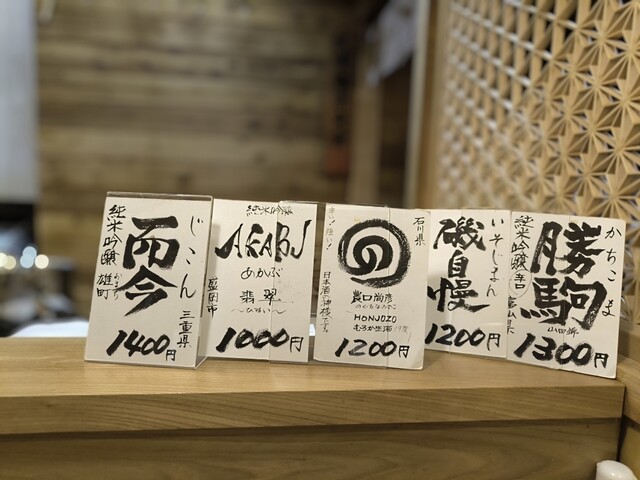 じこん
三重県
而今
純米吟醸
おまち
雄町
1400円
純米吟醸
AKABU
あかぶ
翡翠
〜ひすい〜
盛岡市
1000円
石川県
の
農口尚彦
のぐちなおひこ
HONJOZO
日本酒の神様です。
1200円
いそじまん
磯自慢
1200円
かちこま
勝駒
純米吟醸
富山県
山田錦
1300円